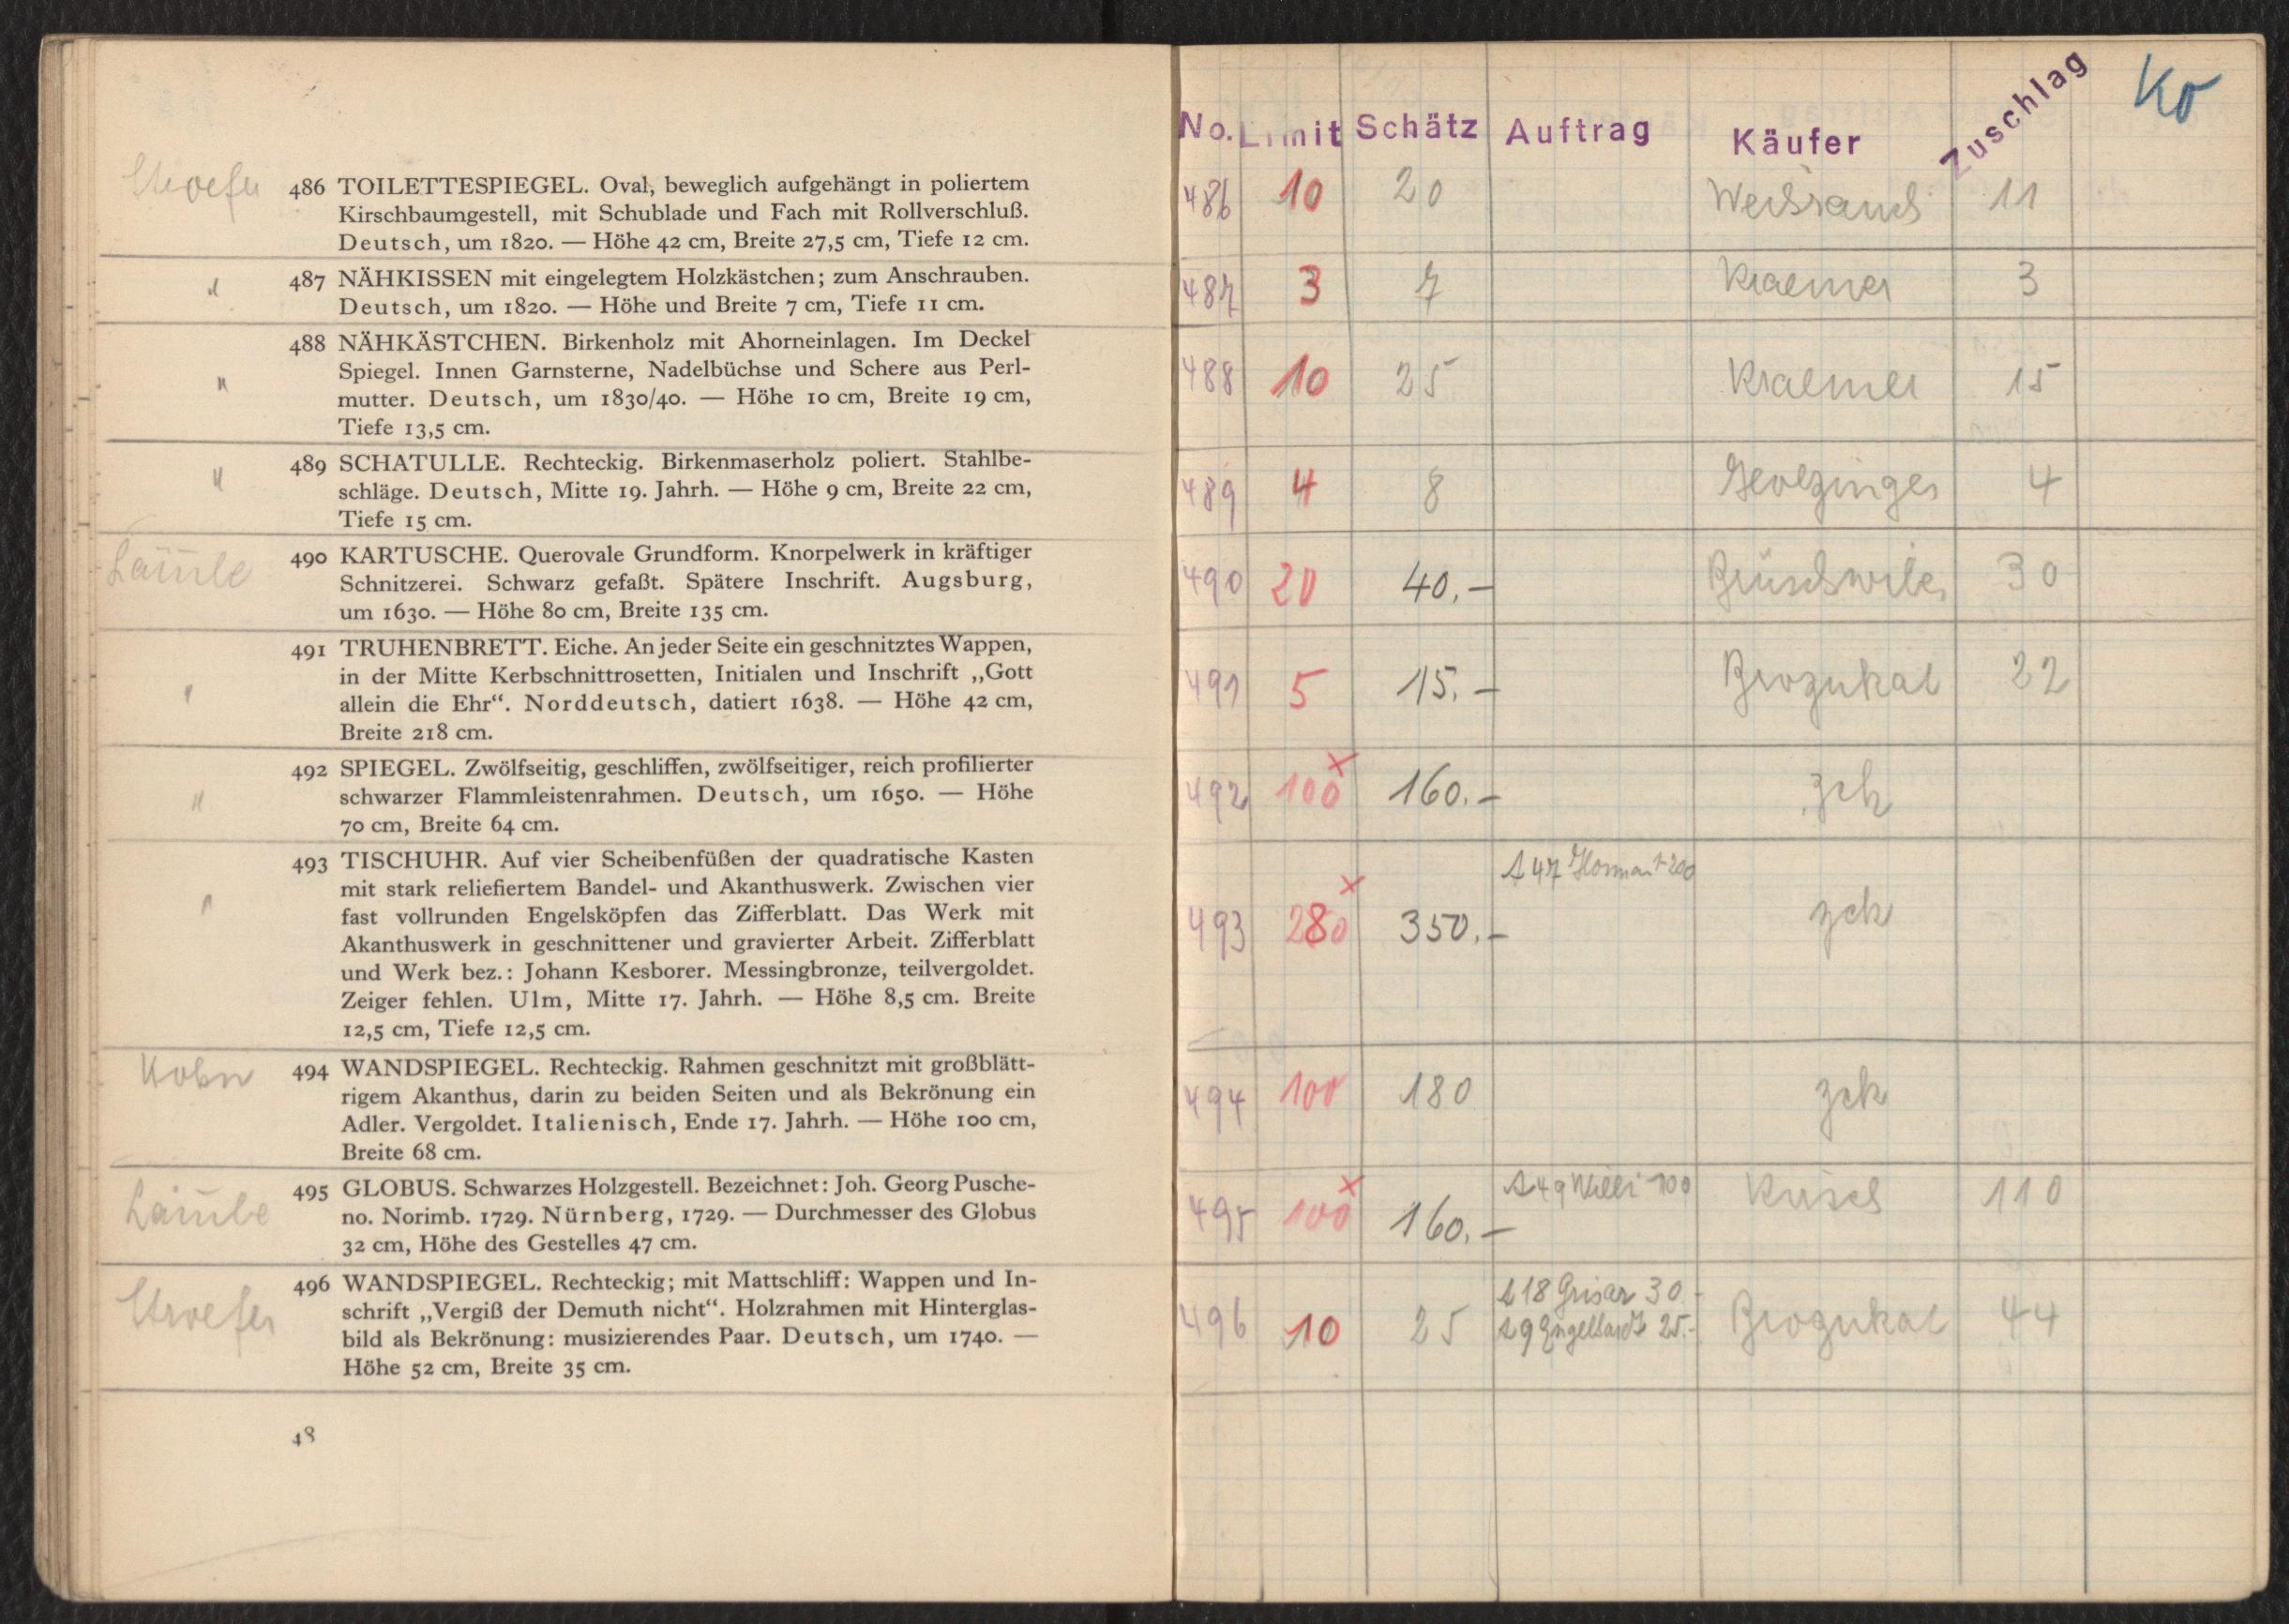 Stroefer 486 TOILETTESPIEGEL. Oval, beweglich aufgehängt in poliertem
Kirschbaumgestell, mit Schublade und Fach mit Rollverschluß.
Deutsch, um 1820. — Höhe 42 cm, Breite 27,5 cm, Tiefe 12 cm.
" 487 NÄHKISSEN mit eingelegtem Holzkästchen; zum Anschrauben.
Deutsch, um 1820. — Höhe und Breite 7 cm, Tiefe 11 cm.
488 NÄHKÄSTCHEN. Birkenholz mit Ahorneinlagen. Im Deckel
" Spiegel. Innen Garnsterne, Nadelbüchse und Schere aus Perl-
mutter. Deutsch, um 1830/40. — Höhe 10 cm, Breite 19 cm,
Tiefe 13,5 cm.
" 489 SCHATULLE. Rechteckig. Birkenmaserholz poliert. Stahlbe-
schläge. Deutsch, Mitte 19. Jahrh. — Höhe 9 cm, Breite 22 cm,
Tiefe 15 cm.
Lämle 490 KARTUSCHE. Querovale Grundform. Knorpelwerk in kräftiger
Schnitzerei. Schwarz gefaßt. Spätere Inschrift. Augsburg,
um 1630. — Höhe 80 cm, Breite 135 cm.
491 TRUHENBRETT. Eiche. An jeder Seite ein geschnitztes Wappen,
in der Mitte Kerbschnittrosetten, Initialen und Inschrift „Gott
" allein die Ehr“. Norddeutsch, datiert 1638. — Höhe 42 cm,
Breite 218 cm.
492 SPIEGEL. Zwölfseitig, geschliffen, zwölfseitiger, reich profilierter
" schwarzer Flammleistenrahmen. Deutsch, um 1650. — Höhe
70 cm, Breite 64 cm.
493 TISCHUHR. Auf vier Scheibenfüßen der quadratische Kasten
mit stark reliefiertem Bandel- und Akanthuswerk. Zwischen vier
" fast vollrunden Engelsköpfen das Zifferblatt. Das Werk mit
Akanthuswerk in geschnittener und gravierter Arbeit. Zifferblatt
und Werk bez.: Johann Kesborer. Messingbronze, teilvergoldet.
Zeiger fehlen. Ulm, Mitte 17. Jahrh. — Höhe 8,5 cm. Breite
12,5 cm, Tiefe 12,5 cm.
494 WANDSPIEGEL. Rechteckig. Rahmen geschnitzt mit großblätt-
rigem Akanthus, darin zu beiden Seiten und als Bekrönung ein
Adler. Vergoldet. Italienisch, Ende 17. Jahrh. — Höhe 100 cm,
Breite 68 cm.
Lämle 495 GLOBUS. Schwarzes Holzgestell. Bezeichnet: Joh. Georg Pusche-
no. Norimb. 1729. Nürnberg, 1729. — Durchmesser des Globus
32 cm, Höhe des Gestelles 47 cm.
Stroefer 496 WANDSPIEGEL. Rechteckig; mit Mattschliff: Wappen und In-
schrift „Vergiß der Demuth nicht“. Holzrahmen mit Hinterglas-
bild als Bekrönung: musizierendes Paar. Deutsch, um 1740. —
Höhe 52 cm, Breite 35 cm.
48
Ko
No. Limit Schätz Auftrag Käufer Zuschlag
486 10 20 11
487 3 7 Kraemer 3
488 10 25 Kraemer 15
489 4 8 4
490 20 40.- 30
491 5 15.- Brozukal 22
492 100 x 160.- zck
A 47 200
493 280 x 350.- zck
494 100 180 zck
495 100 x 160.- A 49 Willi 100 110
A 18 Grisar 30.-
496 10 25 A 9 Engelhardt 25.- Brozukal 44